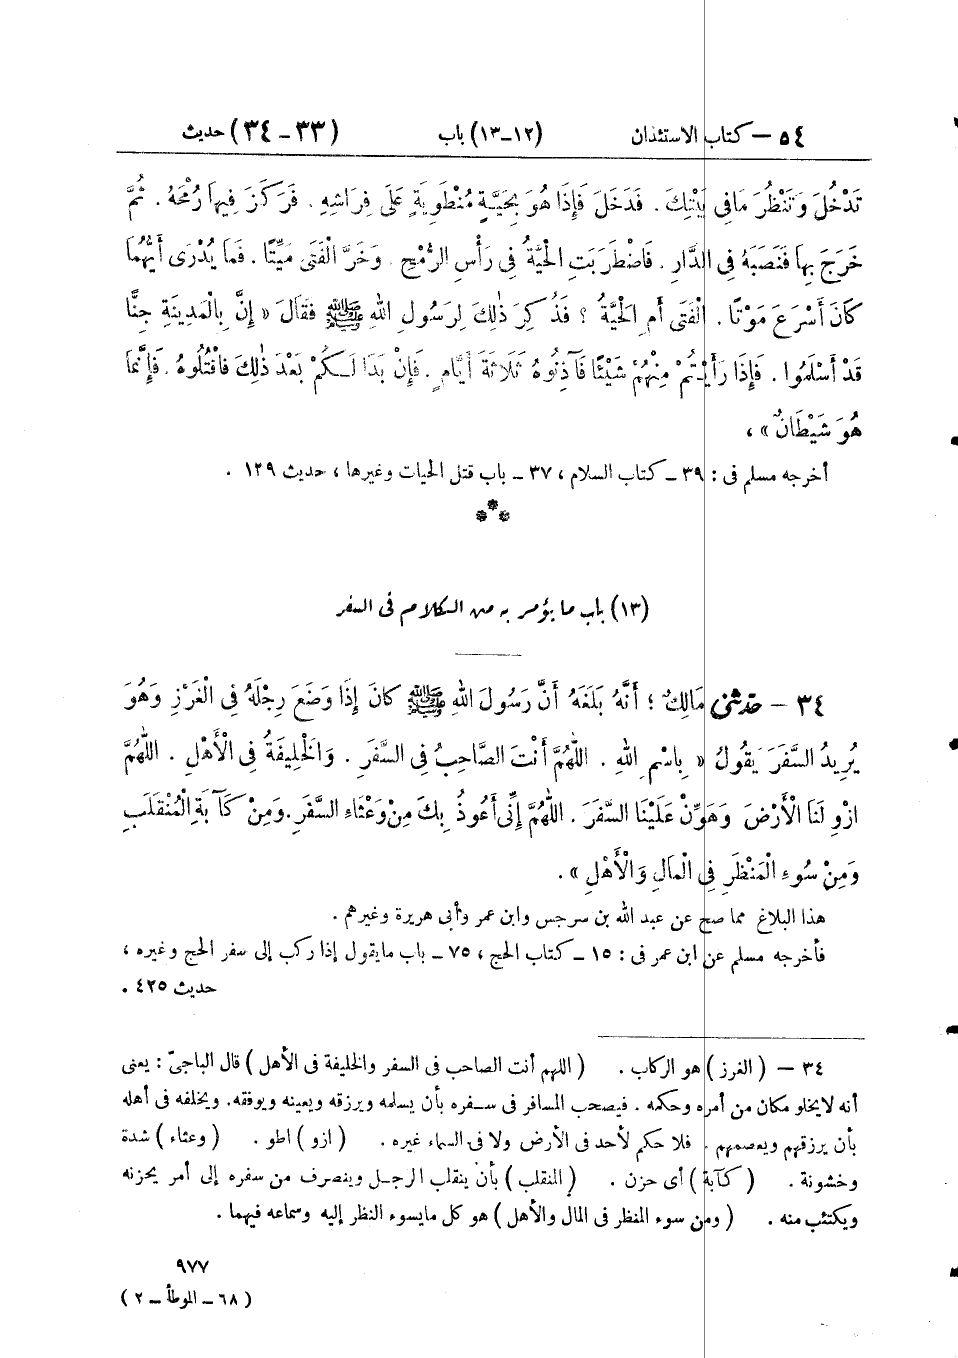 ٥٤ – كتاب الاستئذان (١٢–١٣) باب (٣٣ – ٣٤) حديث
تَدْخُلَ وَتَنْظُرَ مَا فِى بَيْتِكَ . فَدَخَلَ فَإِذَا هُوَ بِحَيَّةٍ مُنْطَوِيَةٍ عَلَى فِرَاشِهِ . فَرَكَزَ فِيهَا رُمْحَهُ . ثُمَّ
خَرَجَ بِهَا فَنَصَبَهُ فِى الدَّارِ . فَاضْطَرَبَتِ الْحَيَّةُ فِى رَأْسِ الرُّمْحِ . وَخَرَّ الْفَتَى مَيِّتًا . فَمَا يُدْرَى أَيُّهُمَا
كَانَ أَسْرَعَ مَوْتًا . الْفَتَى أَمِ الْحَيَّةُ ؟ فَذُكِرَ ذٰلِكَ لِرَسُولِ اللهِ ﷺ فَقَالَ « إِنَّ بِالْمَدِينَةِ جِنًّا
قَدْ أَسْلَمُوا . فَإِذَا رَأَيْتُمْ مِنْهُمْ شَيْئًا فَآذِنُوهُ ثَلَاثَةَ أَيَّامٍ . فَإِنْ بَدَا لَكُمْ بَعْدَ ذٰلِكَ فَاقْتُلُوهُ . فَإِنَّمَا
هُوَ شَيْطَانٌ » ،
أخرجه مسلم فى : ٣٩ – كتاب السلام ، ٣٧ – باب قتل الحيات وغيرها ، حديث ١٢٩ .
(١٣) باب ما يؤمر به من الكلام فى السفر
٣٤ – حَدَّثَنِى مَالِكٌ ؛ أَنَّهُ بَلَغَهُ أَنَّ رَسُولَ اللهِ ﷺ كَانَ إِذَا وَضَعَ رِجْلَهُ فِى الْغَرْزِ وَهُوَ
يُرِيدُ السَّفَرَ يَقُولُ « بِاسْمِ اللهِ . اللّٰهُمَّ أَنْتَ الصَّاحِبُ فِى السَّفَرِ . وَالْخَلِيفَةُ فِى الْأَهْلِ . اللّٰهُمَّ
ازْوِ لَنَا الْأَرْضَ وَهَوِّنْ عَلَيْنَا السَّفَرَ . اللّٰهُمَّ إِنِّى أَعُوذُ بِكَ مِنْ وَعْثَاءِ السَّفَرِ . وَمِنْ كَآبَةِ الْمُنْقَلَبِ
وَمِنْ سُوءِ الْمَنْظَرِ فِى الْمَالِ وَالْأَهْلِ » .
هذا البلاغ مما صح عن عبد الله بن سرجس وابن عمر وأبى هريرة وغيرهم .
فأخرجه مسلم عن ابن عمر فى : ١٥ – كتاب الحج ، ٧٥ – باب ما يقول إذا ركب إلى سفر الحج وغيره ،
حديث ٤٢٥ .
٣٤ – ( الغرز ) هو الركاب . ( اللهم أنت الصاحب فى السفر والخليفة فى الأهل ) قال الباجىّ : يعنى
أنه لا يخلو مكان من أمره وحكمه . فيصحب المسافر فى سفره بأن يسلمه ويرزقه ويعينه ويوفقه. ويخلفه فى أهله
بأن يرزقهم ويعصمهم . فلا حكم لأحد فى الأرض ولا فى السماء غيره . ( ازو ) اطو . ( وعثاء ) شدة
وخشونة . ( كآبة ) أى حزن . ( المنقلب ) بأن ينقلب الرجل وينصرف من سفره إلى أمر يحزنه
ويكتئب منه . ( ومن سوء المنظر فى المال والأهل ) هو كل ما يسوء النظر إليه وسماعه فيهما .
٩٧٧
( ٦٨ – الموطأ – ٢ )